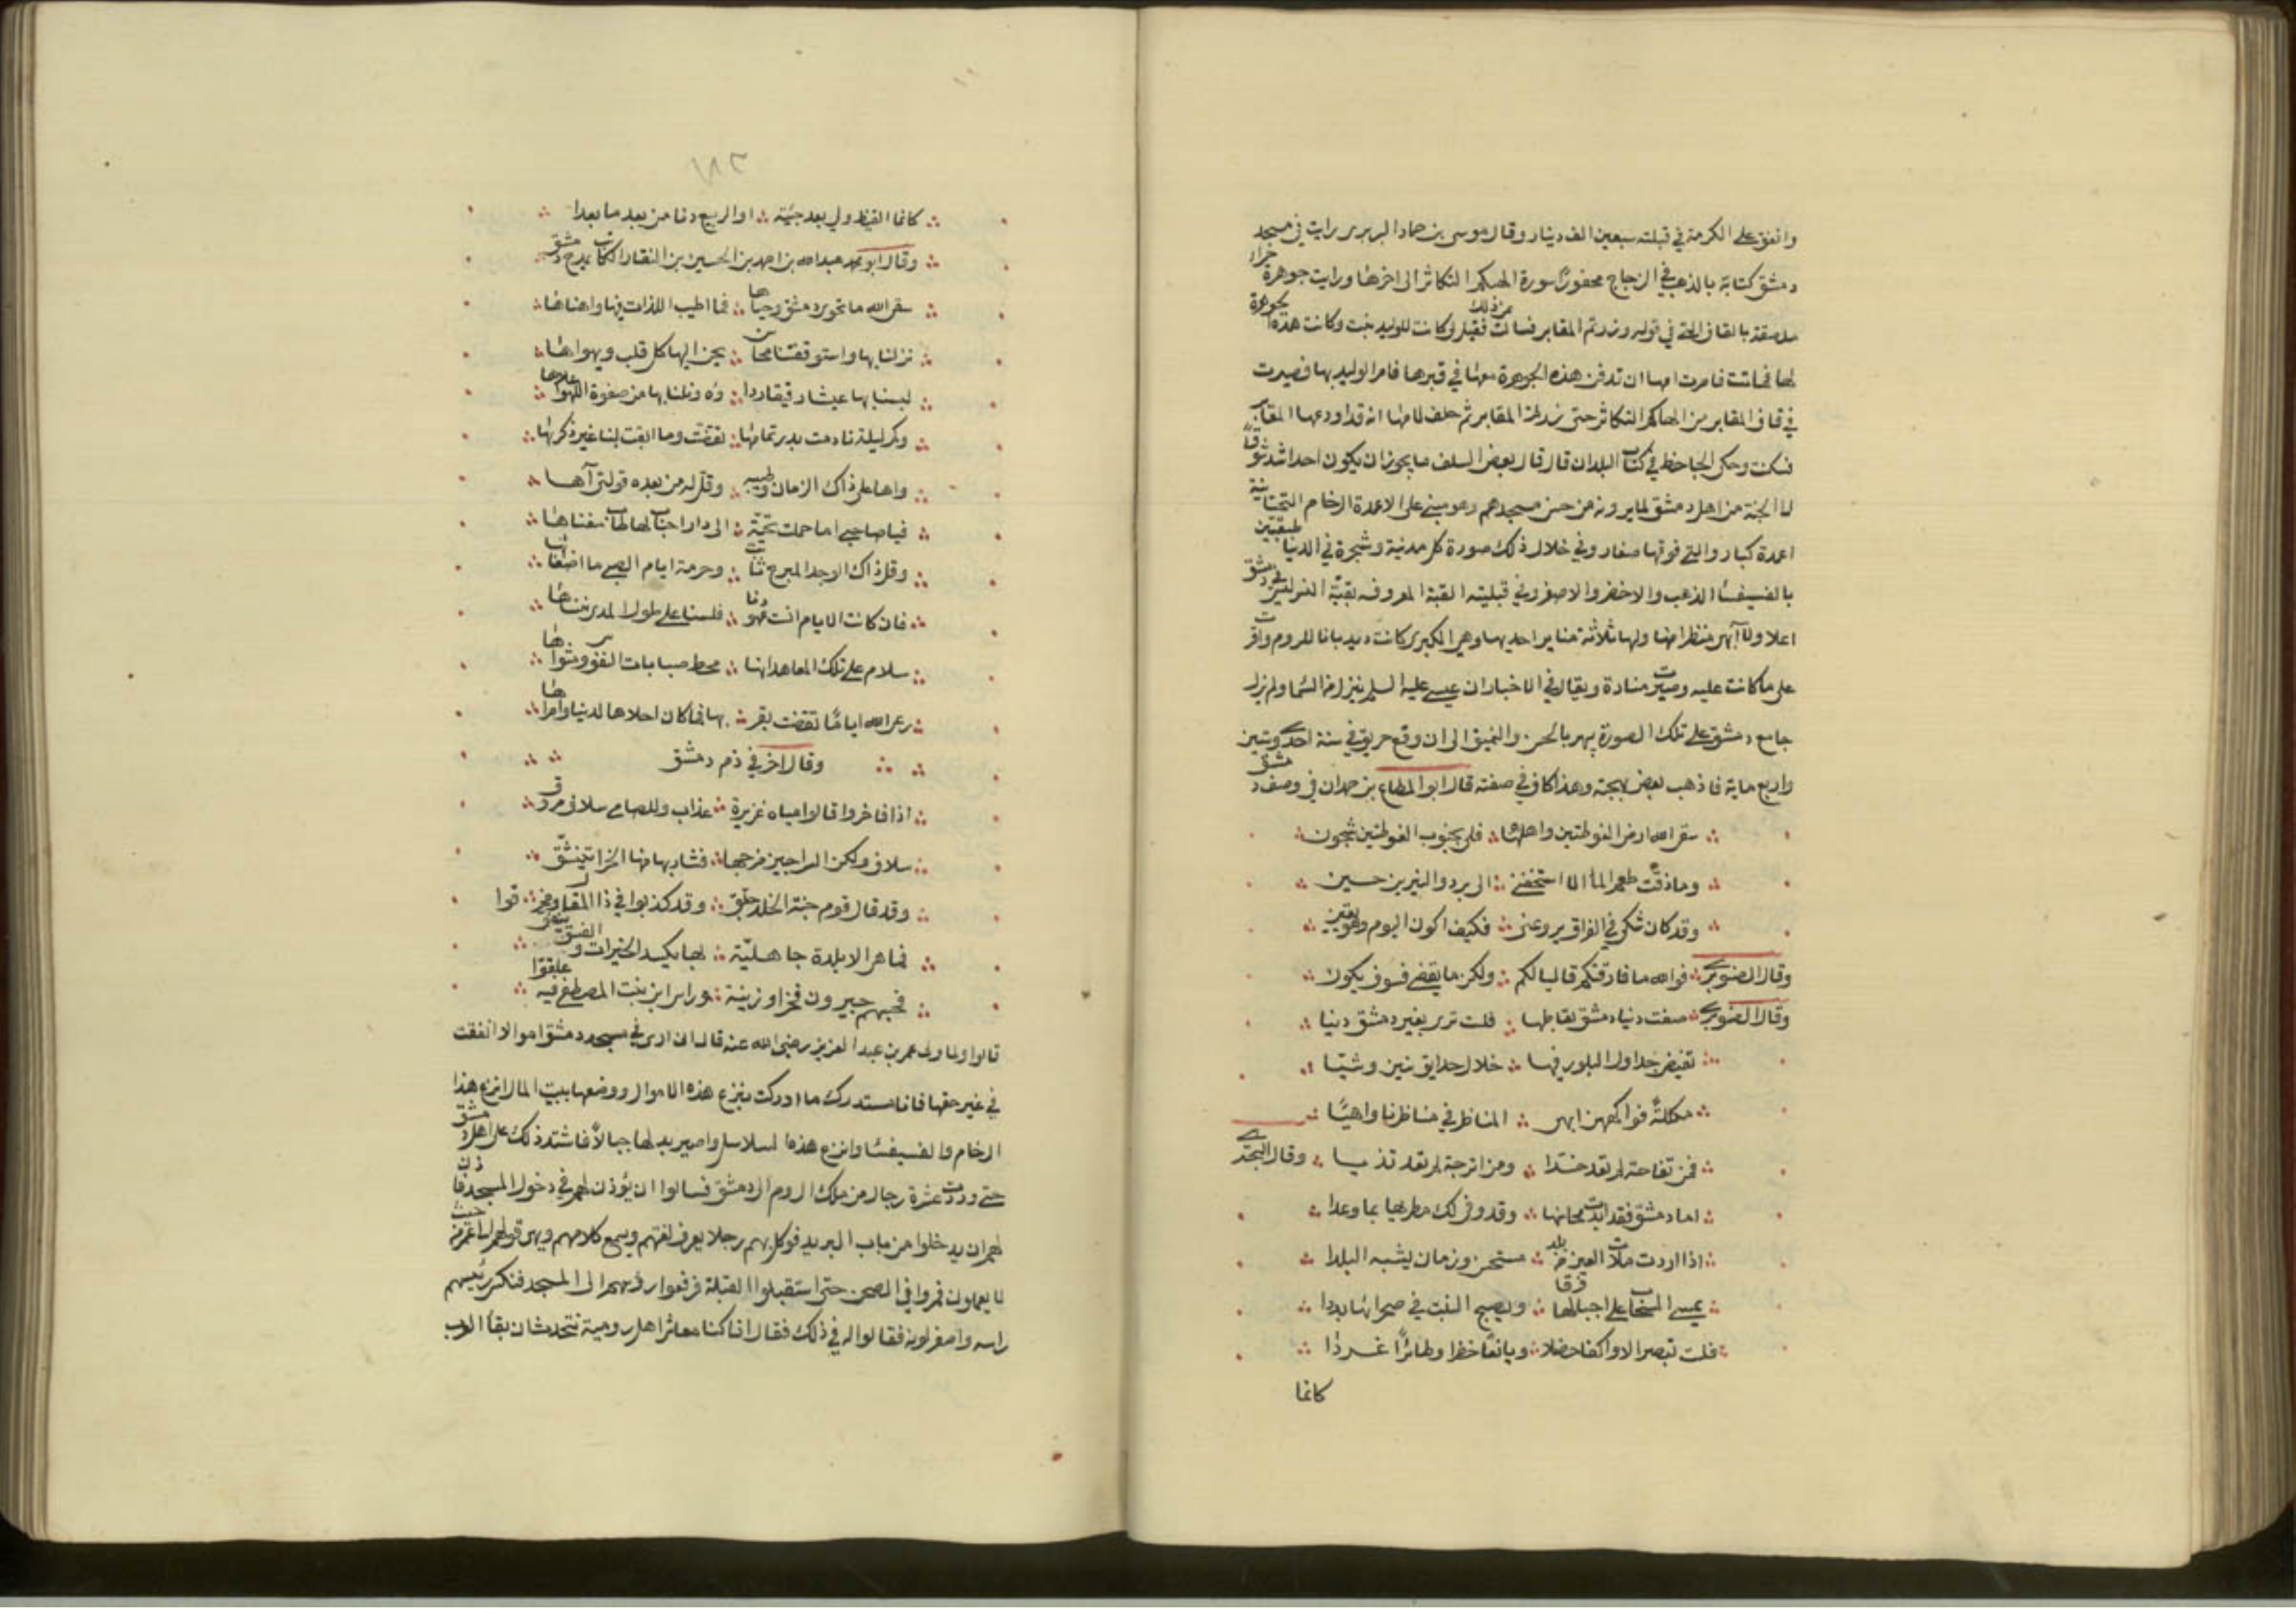 وانفق على الكرمة في قبلته سبعين الف دينار وقال موسى بن حماد البربري رايت في مسجد
دمشق كتابة بالذهب في الزجاج محفورا سورة الهيكم التكاثر الى اخرها ورايت جوهرة حمراء
ملصقة بالقاف التي في قوله زرتم المقابر فسالت من ذلك فقيل لي كانت للوليد بنت وكانت هذه الجوهرة
لها فماتت فامرت امها ان تدفن هذه الجوهرة معها في قبرها فامر الوليد بها فصيرت
في قاف المقابر من الهاكم التكاثر حتى زرتم المقابر ثم حلف لامها انه قد اودعها المقابر
فسكتت وحكى الجاحظ في كتاب البلدان قال قال بعض السلف ما يجوز ان يكون احد اشد شوقا
الى الجنة من اهل دمشق لما يرونه من حسن مسجدهم وهو مبني على الاعمدة الرخام طبقتين التحتانية
اعمدة كبار والتي فوقها صغار وفي خلال ذلك صورة كل مدينة وشجرة في الدنيا
بالفسيفسا الذهب والاخضر والاصفر وفي قبليته القبة المعروفه بقبة النسر ليس في دمشق
اعلا ولا ابهى منظرا منها ولها ثلاثة مناير احديها وهي الكبرى كانت ديدبانا للروم واقرت
على ما كانت عليه وصيرت منارة ويقال في الاخبار ان عيسى عليه السلم ينزل من السما ولم يزل
جامع دمشق على تلك الصورة يبهر بالحسن والتنميق الى ان وقع حريق في سنة احدى وستين
واربع ماية فاذهب بعض بهجته وهذا كاف في صفته قال ابو المطاع بن حمدان في وصف دمشق
سقى الله ارض الغوطتين واهلها فلي بجنوب الغوطتين شجون
وما ذقت طعم الما الا استخفني الى بردا والنيربين حنين
وقد كان شكي في الفراق يروعني فكيف اكون اليوم وهو يقين
وقال الصنوبري فوالله ما فارقتكم قاليا لكم ولكن ما يقضى فسوف يكون
وقال الصنوبري صفت دنيا دمشق لقاطنيها فلست ترى بغير دمشق دنيا
تفيض جداول البلور فيها خلال حدايق ينبتن وشيا
مكللة فواكههن ابهى المناظر في مناظرنا واهيا
فمن تفاحة لم تعد خدا ومن اترجة لم تعد ثديا وقال البحتري
اما دمشق فقد ابدت محاسنها وقد وفى لك مطريها بما وعدا
اذا اردت ملات العين من بلد مستحسن وزمان يشبه البلدا
يمسي السحاب على اجبالها فرقا ويصبح النبت في صحرائها بددا
فلست تبصر الا واكفا خضلا ويانعا خضرا وطائرا غردا
كانما
١٨٢
كانما القيظ ولى بعد جيئته او الربيع دنا من بعد ما بعدا
وقال ابو محمد عبد الله بن احمد بن الحسين بن النقار الكاتب يمدح دمشق
سقى الله ما تحوي دمشق وحياها فما اطيب اللذات فيها واهناها
نزلنا بها واستوقفتنا محاسن يحن اليها كل قلب ويهواها
لبسنا بها عيشا رقيقا رداؤه ونلنا بها من صفوة اللهو اعلاها
وكم ليلة نادمت بدر تمامها تقضت وما ابقت لنا غير ذكراها
واها على ذاك الزمان وطيبه وقل له من بعده قولتي آها
فيا صاحبي اما حملت تحية الى دار احباب لها طاب مغناها
وقل ذاك الوجد المبرح ثابت وحرمة ايام الصبى ما اضعناها
فان كانت الايام انست عهودنا فلسنا على طول المدى نتناساها
سلام على تلك المعاهد انها محط صبابات النفوس ومثواها
رعى الله اياما تقضت بقربها فما كان احلاها لدينا وامراها
وقال اخر في ذم دمشق
اذا فاخروا قالوا مياه غزيرة عذاب وللصامي سلاف مروق
سلاف ولكن السراجين مزجها فشاربها منها الخرا يتنشق
وقد قال قوم جنة الخلد جلق وقد كذبوا في ذا المقال ومخرقوا
فما هي الا بلدة جاهلية بها يكسد الخيرات والفسق ينفق
فحسبهم جيرون فخرا وزينة وراس ابن بنت المصطفى فيه علقوا
قالوا ولما ولى عمر بن عبد العزيز رضي الله عنه قال ان ارى في مسجد دمشق اموالا انفقت
في غير حقها فانا مستدرك ما ادركت بنزع هذه الاموال ووضعها ببيت المال انزع هذا
الرخام والفسيفسا وانزع هذه السلاسل واصير بدلها حبالا فاشتد ذلك على اهل دمشق
حتى وردت عشرة رجال من ملك الروم الى دمشق فسالوا ان يؤذن لهم في دخول المسجد فاذن
لهم ان يدخلوا من باب البريد فوكل بهم رجلا يعرف لغتهم ويسمع كلامهم وينهي قولهم لعمر من حيث
لا يعلمون فمروا في الصحن حتى استقبلوا القبلة فرفعوا رؤسهم الى المسجد فنكس رئيسهم
راسه واصفر لونه فقالوا له في ذلك فقال انا كنا معاشر اهل رومية نتحدث ان بقاء العرب